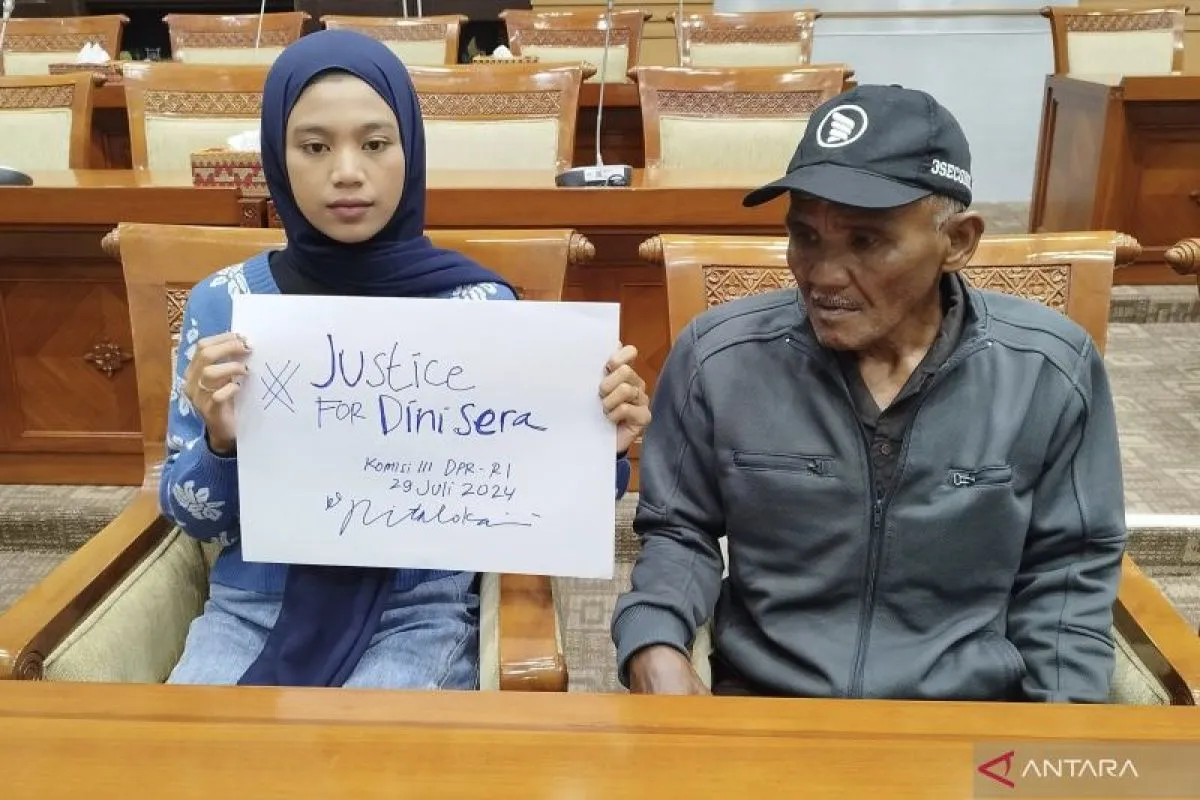 JUSTICE
FOR Dini Sera
Komisi III DPR-RI
29 Juli 2024
ANTARA